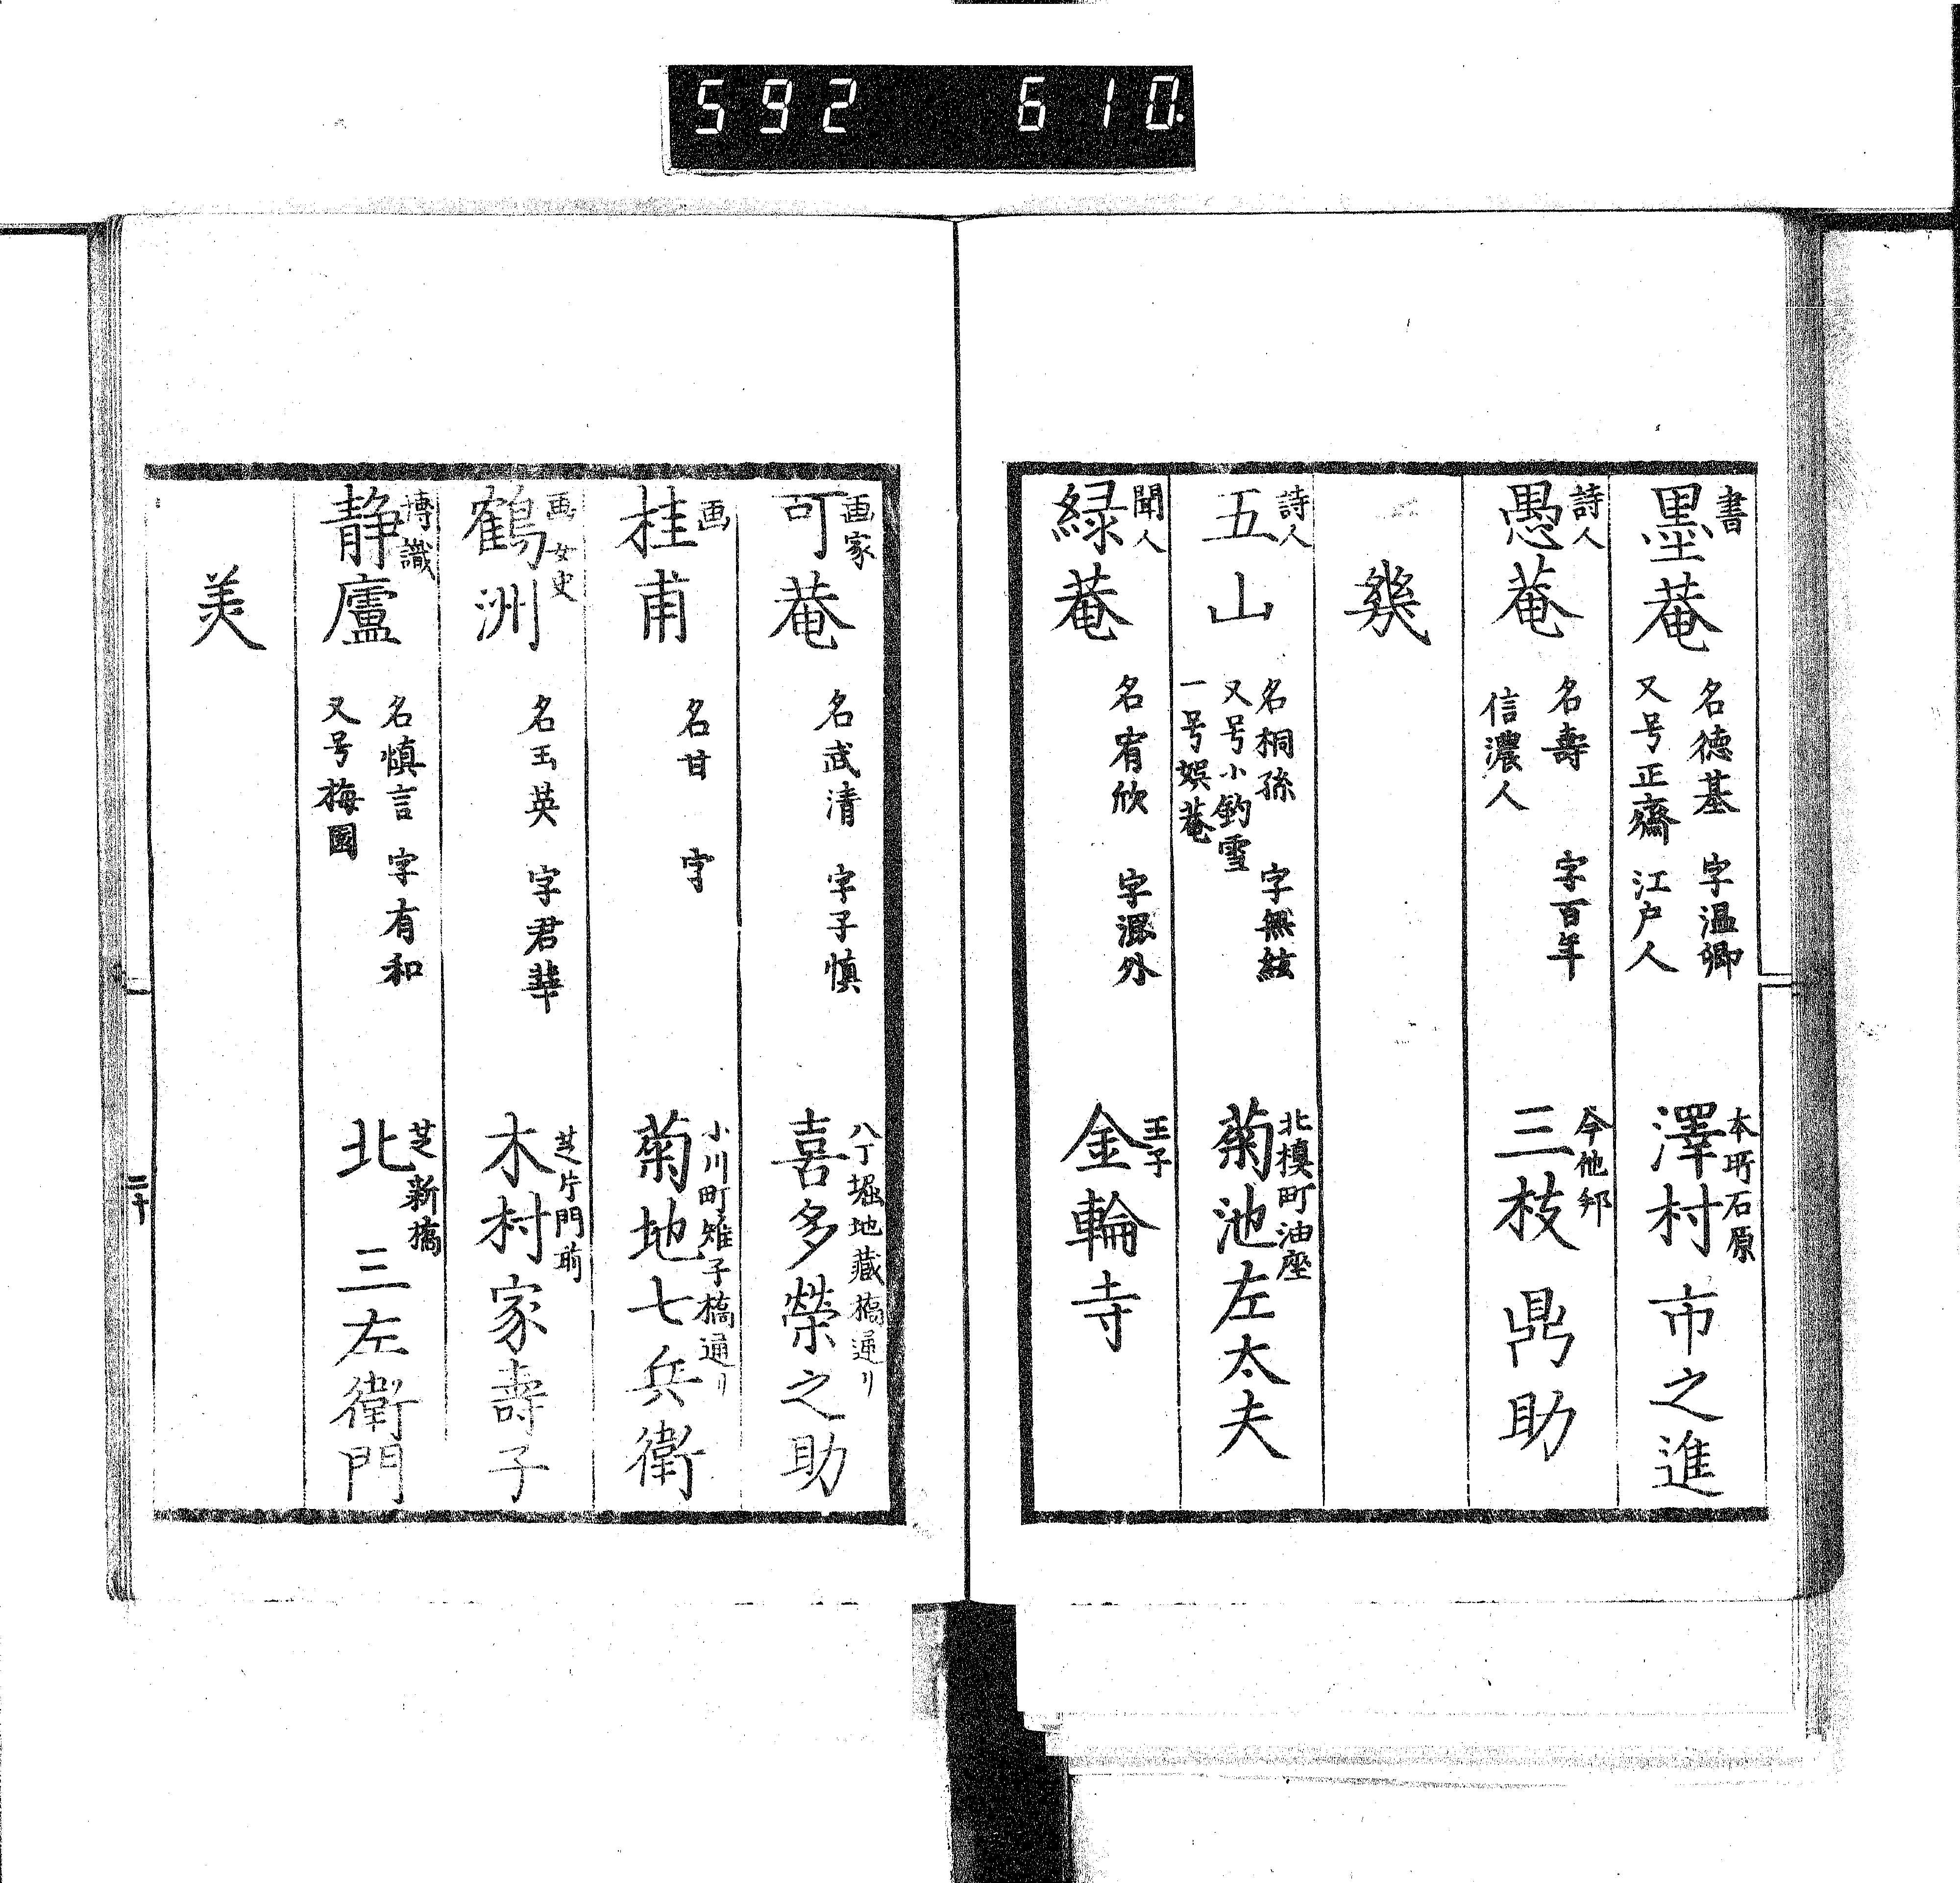 592 610
書
墨菴 名徳基 字温卿
又号正齋 江戸人
本所石原
澤村市之進
詩人
愚菴 名壽 字百年
信濃人
今他邦
三枝鼎助
幾
詩人
五山 名桐孫 字無絃
又号小釣雪
一号娯菴
北槙町油座
菊池左太夫
聞人
緑菴 名宥欣 字混外
王子
金輪寺
画家
可菴 名武清 字子慎
八丁堀地蔵橋通り
喜多榮之助
画
桂甫 名甘 字
小川町雉子橋通り
菊地七兵衛
画 女史
鶴洲 名玉英 字君華
芝片門前
木村家壽子
博識
静廬 名慎言 字有和
又号梅園
芝新橋
北三左衛門
美
二十